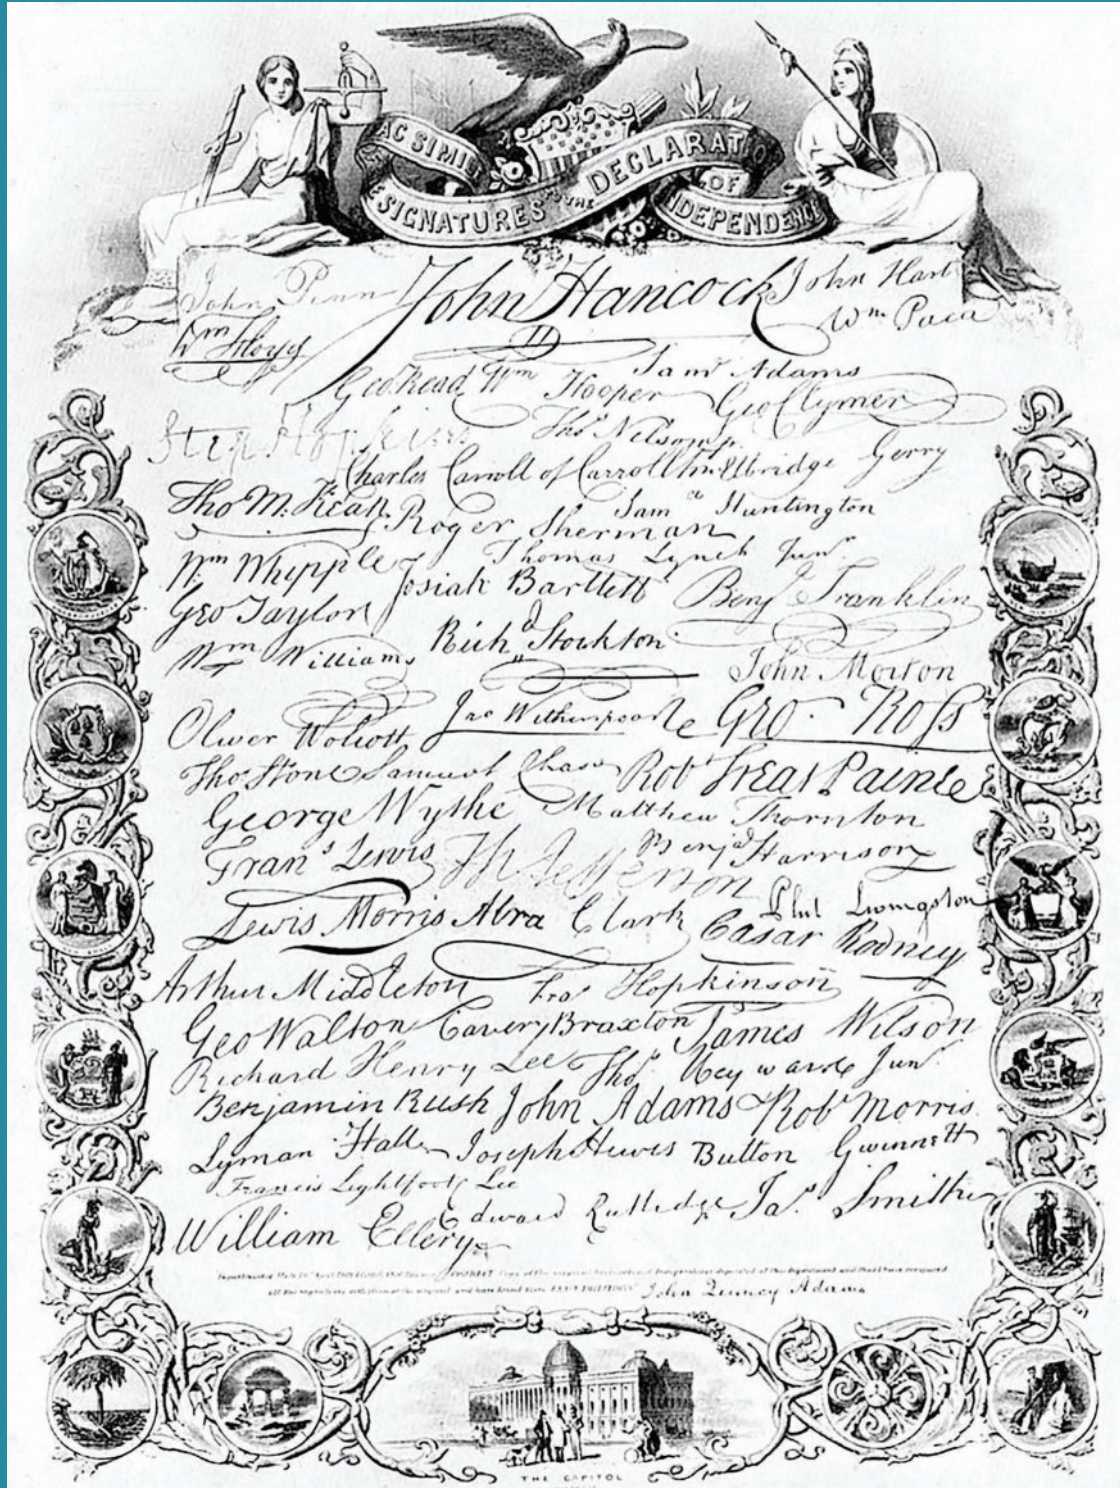 FAC SIMILE
SIGNATURES TO THE DECLARATION
OF
INDEPENDENCE
John Penn John Hancock John Hart
Wm Floyd Wm Paca
Geo. Read Wm Hooper Saml Adams
Geo Clymer
Step Hopkins Thos Nelson jr.
Charles Carroll of Carrollton Elbridge Gerry
Tho M: Kean Roger Sherman Saml Huntington
Wm Whipple Josiah Bartlett Thomas Lynch Junr.
Geo Taylor Benj Franklin
Wm Williams Richd Stockton John Morton
Oliver Wolcott Jno Witherspoon Geo. Ross
Tho Stone Samuel Chase Robt Treat Paine
George Wythe Matthew Thornton
Frans Lewis Th Jefferson Benja Harrison
Lewis Morris Abra Clark Phil Livingston
Cæsar Rodney
Arthur Middleton Fras Hopkinson
Geo Walton Carter Braxton James Wilson
Richard Henry Lee Thos Heyward Junr.
Benjamin Rush John Adams Robt Morris
Lyman Hall Joseph Hewes Button Gwinnett
Francis Lightfoot Lee
William Ellery Edward Rutledge Jas. Smith
John Quincy Adams
THE CAPITOL